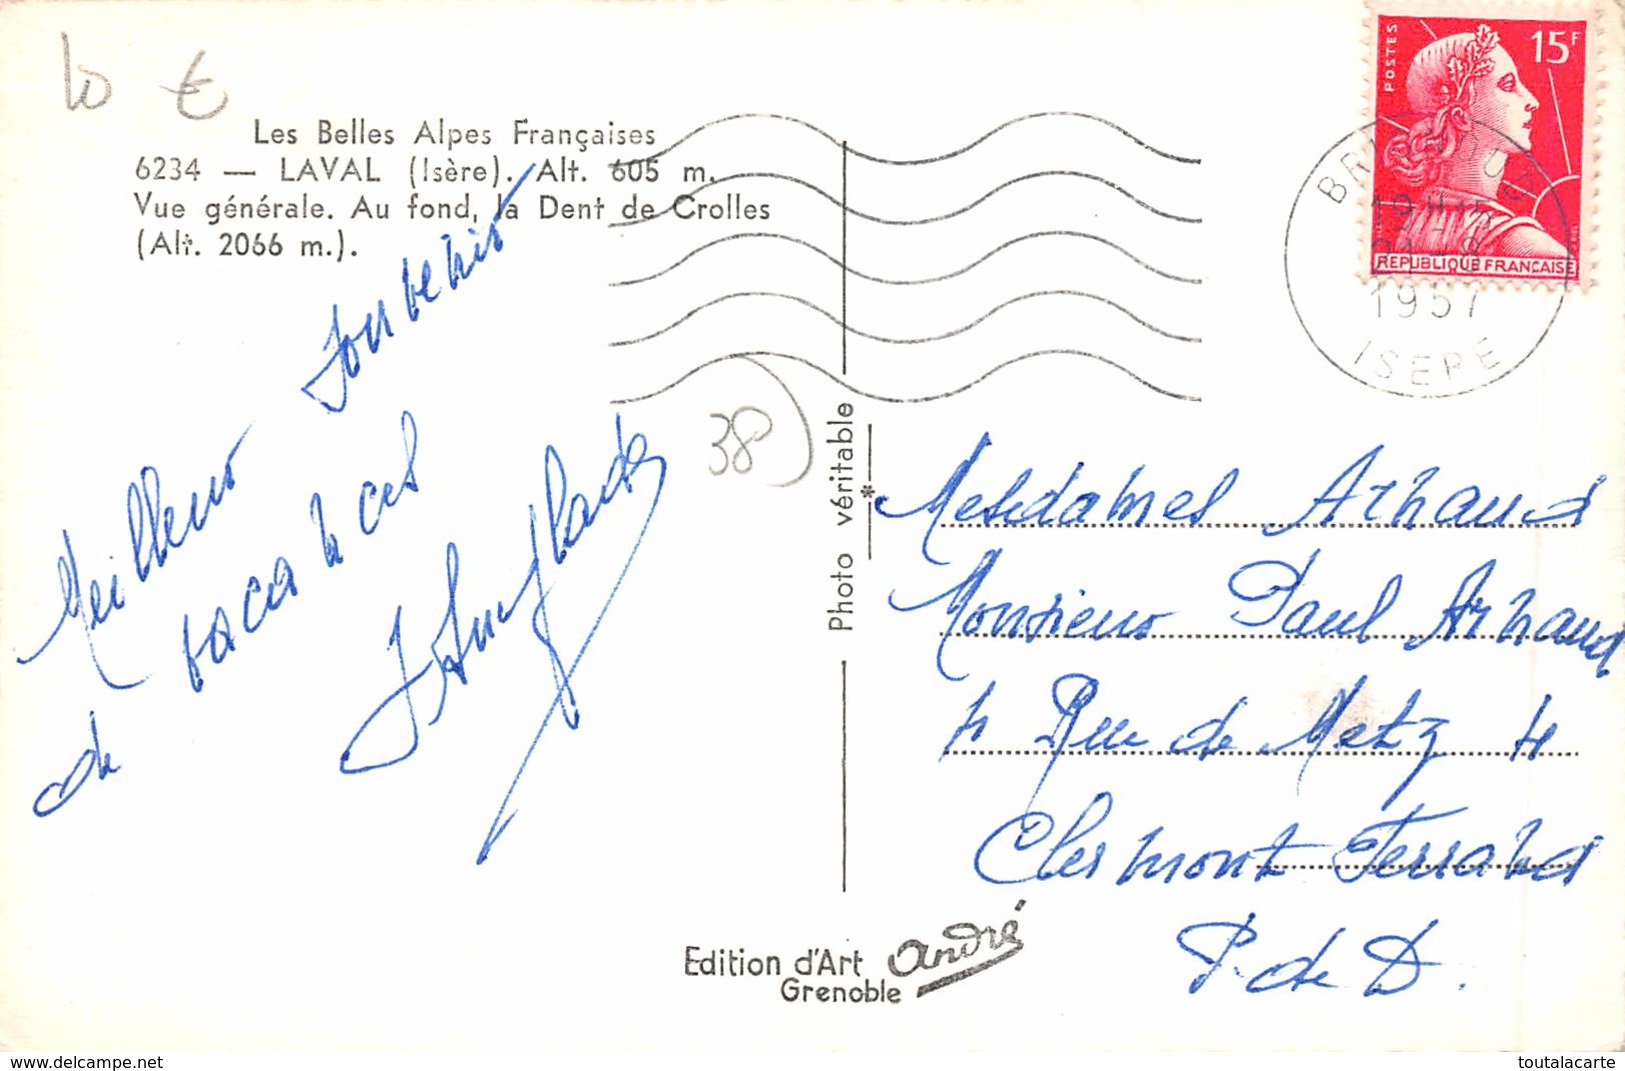 10 €
Les Belles Alpes Françaises
6234 — LAVAL (Isère). Alt. 605 m.
Vue générale. Au fond, la Dent de Crolles
(Alt. 2066 m.).
Meilleurs souvenirs
de vacances
38
Photo véritable
*
Edition d'Art André
Grenoble
POSTES
15F
REPUBLIQUE FRANCAISE
19H15
21-8
1957
ISERE
Mesdames Arnaud
Monsieur Paul Arnaud
4 Rue de Metz 4
Clermont Ferrand
P. de D.
www.delcampe.net
toutalacarte